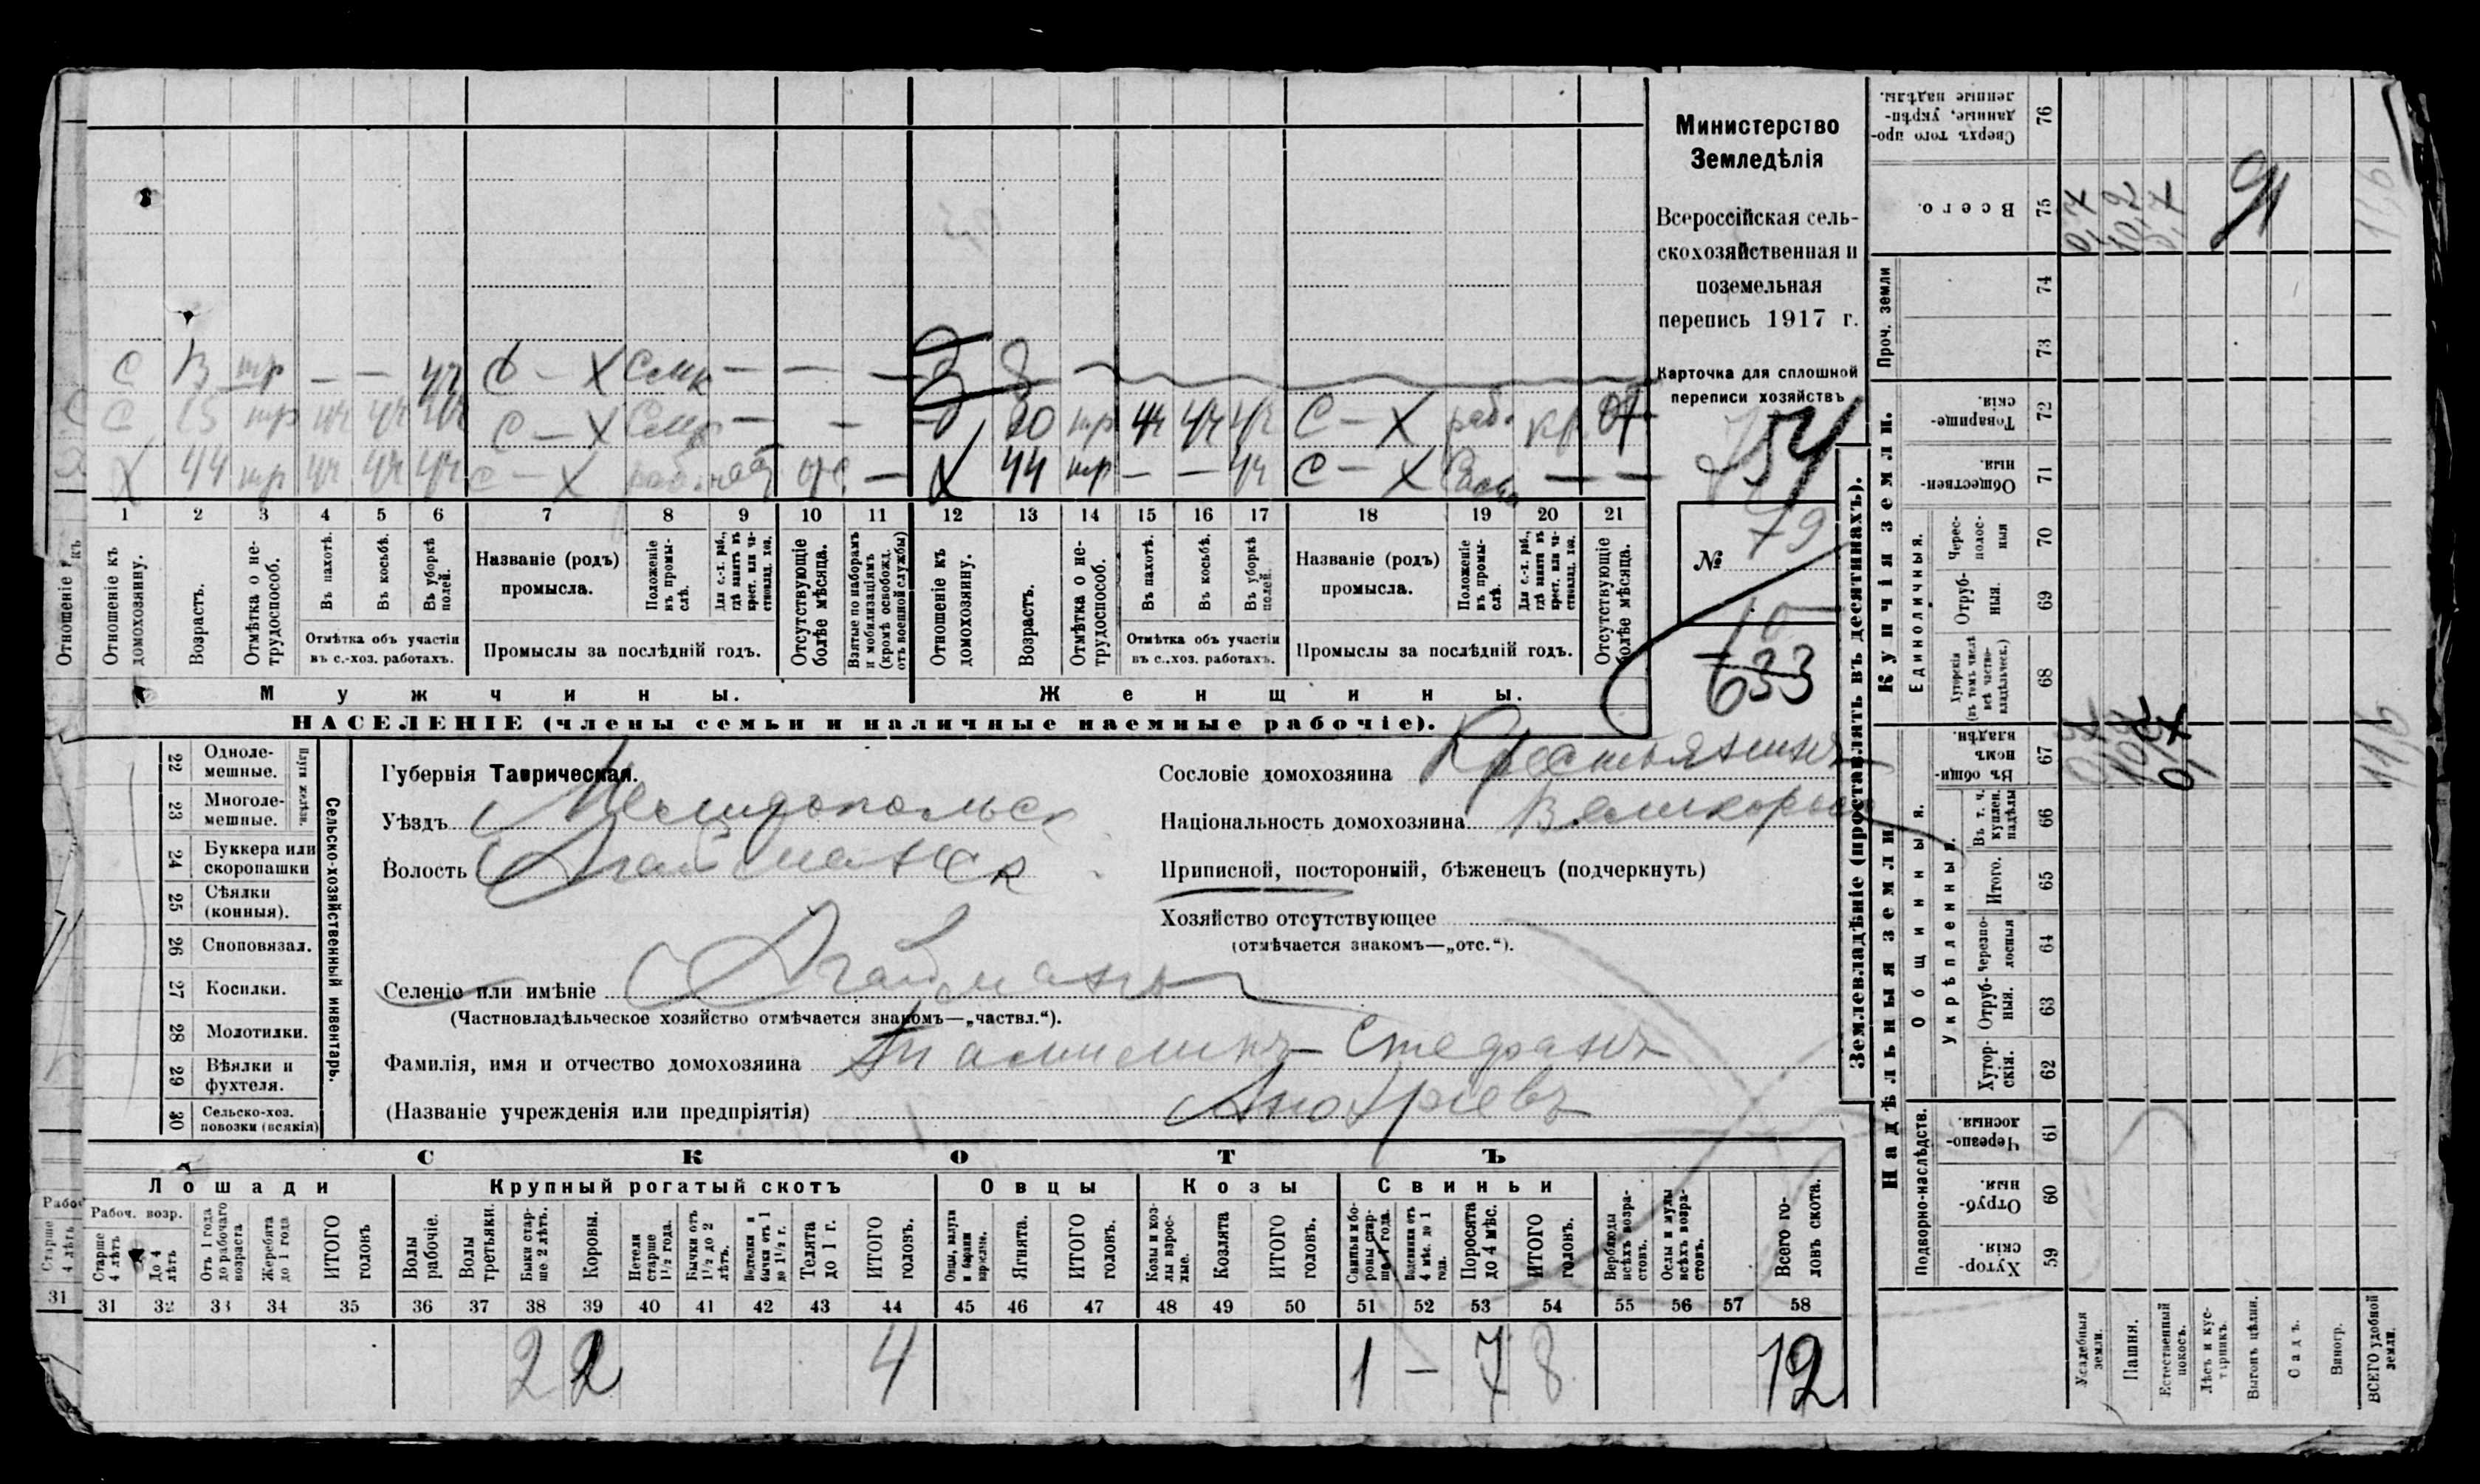 С 13 тр — — уч С — Х Смк — — — 8
С 15 тр уч уч уч С — Х — — 20 тр уч уч уч С — Х раб. кр
Х 44 тр уч уч уч С — Х — Х 44 тр — — уч С — Х — —
1 2 3 4 5 6 7 8 9 10 11 12 13 14 15 16 17 18 19 20 21
Отношеніе къ домохозяину.
Возрастъ.
Отмѣтка о нетрудоспособ.
Въ пахотѣ.
Въ косьбѣ.
Въ уборкѣ полей.
Отмѣтка объ участіи
въ с.-хоз. работахъ.
Названіе (родъ)
промысла.
Положеніе въ промыслѣ.
Для с.-х. раб., гдѣ занятъ въ крест. или частновлад. хоз.
Промыслы за послѣдній годъ.
Отсутствующіе болѣе мѣсяца.
Взятые по наборамъ и мобилизаціямъ (кромѣ освобожд. отъ военной службы)
Отношеніе къ домохозяину.
Возрастъ.
Отмѣтка о нетрудоспособ.
Въ пахотѣ.
Въ косьбѣ.
Въ уборкѣ полей.
Отмѣтка объ участіи
въ с.-хоз. работахъ.
Названіе (родъ)
промысла.
Положеніе въ промыслѣ.
Для с.-х. раб., гдѣ занятъ въ крест. или частновлад. хоз.
Промыслы за послѣдній годъ.
Отсутствующіе болѣе мѣсяца.
Мужчины. Женщины.
НАСЕЛЕНІЕ (члены семьи и наличные наемные рабочіе).
Министерство
Земледѣлія
Всероссійская сель-
скохозяйственная и
поземельная
перепись 1917 г.
Карточка для сплошной
переписи хозяйствъ
54
№ 79
633
22 Одноле-
мешные.
23 Многоле-
мешные.
Плуги желѣзн.
24 Буккера или
скоропашки
25 Сѣялки
(конныя).
26 Сноповязал.
27 Косилки.
28 Молотилки.
29 Вѣялки и
фухтеля.
30 Сельско-хоз.
повозки (всякія)
Сельско-хозяйственный инвентарь.
Губернія Таврическая.
Уѣздъ Мелитопольск
Волость Агайманск
Селеніе или имѣніе Агайманъ
(Частновладѣльческое хозяйство отмѣчается знакомъ—„частвл.“).
Фамилія, имя и отчество домохозяина Стефанъ
(Названіе учрежденія или предпріятія) Андреевъ
Сословіе домохозяина Крестьянинъ
Національность домохозяина Великороссъ
Приписной, посторонній, бѣженецъ (подчеркнуть)
Хозяйство отсутствующее
(отмѣчается знакомъ—„отс.“).
СКОТЪ
Лошади Крупный рогатый скотъ Овцы Козы Свиньи
Рабоч. возр.
Старше 4 лѣтъ
До 4 лѣтъ
Отъ 1 года до рабочаго возраста
Жеребята до 1 года
ИТОГО головъ
Волы рабочіе.
Волы третьяки.
Быки старше 2 лѣтъ.
Коровы.
Нетели старше 1½ года.
Бычки отъ 1½ до 2 лѣтъ.
Подтелки и бычки отъ 1 до 1½ г.
Телята до 1 г.
ИТОГО головъ.
Овцы, валухи и бараны взрослые.
Ягнята.
ИТОГО головъ.
Козы и козлы взрослые.
Козлята
ИТОГО головъ.
Свиньи и боровы старше 1 года.
Подсвинки отъ 4 мѣс. до 1 года.
Поросята до 4 мѣс.
ИТОГО головъ.
Верблюды всѣхъ возрастовъ.
Ослы и мулы всѣхъ возрастовъ.
Всего головъ скота.
31 32 33 34 35 36 37 38 39 40 41 42 43 44 45 46 47 48 49 50 51 52 53 54 55 56 57 58
2 2 4 1 — 7 8 12
Землевладѣніе (проставлять въ десятинахъ).
Надѣльныя земли. Купчія земли. Проч. земли
Подворно-наслѣдств. Общинныя. Единоличныя.
Укрѣпленныя.
Хуторскія. 59
Отрубныя. 60
Черезполосныя. 61
Хуторскія. 62
Отрубныя. 63
Черезполосныя 64
Итого. 65
Въ т. ч. куплен. надѣлы 66
Въ общиномъ владѣн. 67
Хуторскія (въ томъ числѣ всѣ частновладѣльческ.) 68
Отрубныя. 69
Чересполосныя 70
Общественныя. 71
Товарищескія. 72
73
74
Всего. 75
Сверхъ того проданные, укрѣпленные надѣлы. 76
Усадебныя земли.
Пашня.
Естественный покосъ.
Лѣсъ и кустарникъ.
Выгонъ цѣлин.
Садъ.
Виногр.
ВСЕГО удобной земли.
0,7 10,2 0,7 11,6